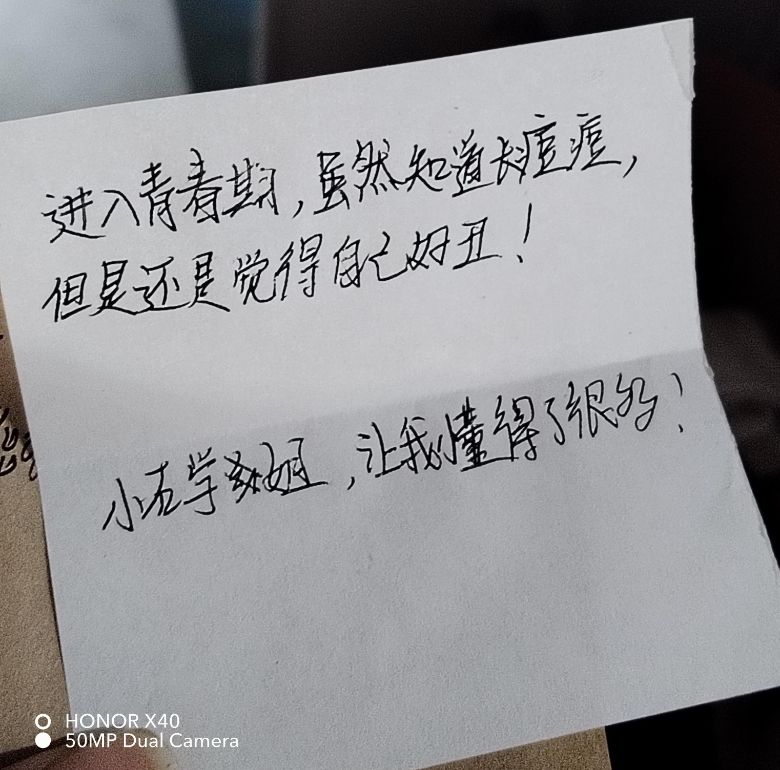 进入青春期，虽然知道长痘痘，
但是还是觉得自己好丑！
小石学姐，让我懂得了很多！
HONOR X40
50MP Dual Camera